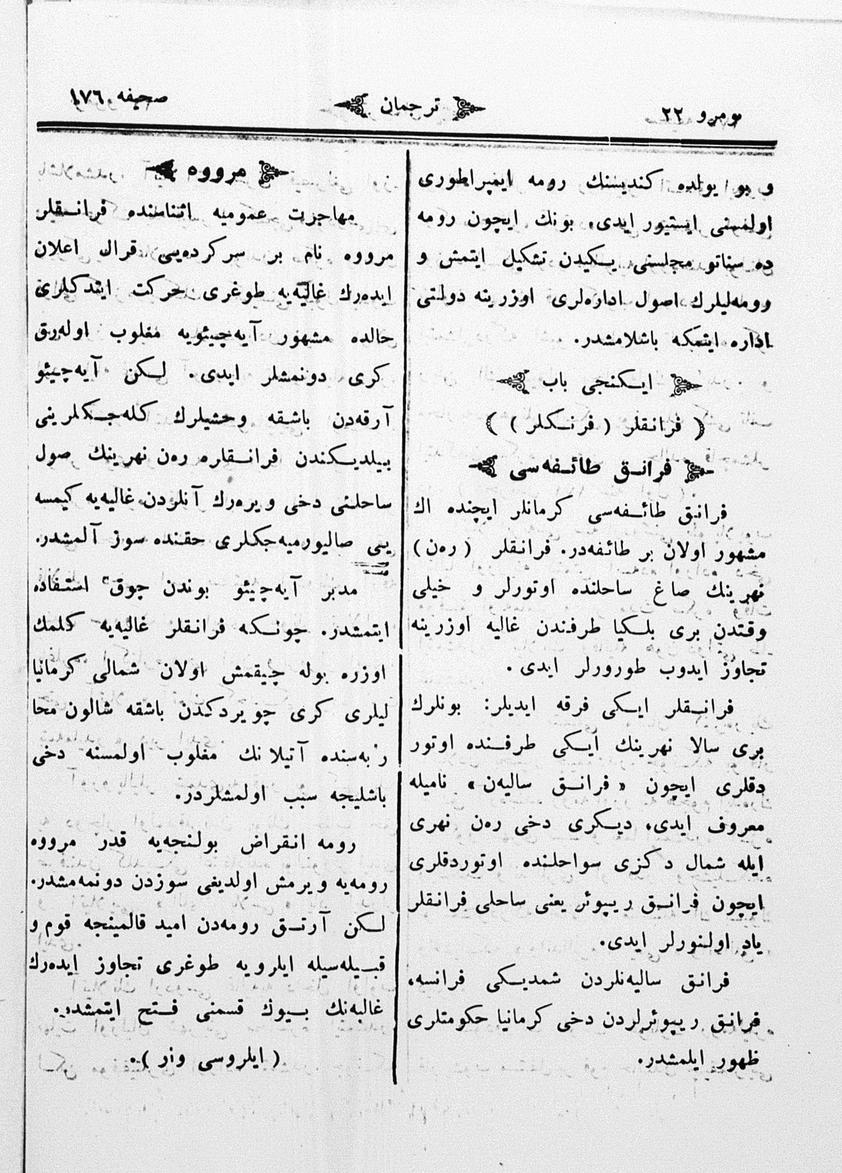 نومرو ٢٢
ترجمان
صحیفه ١٧٦
و بو یولده كندیسنك رومه ایمپراطوری
اولمسنی ایستیور ایدی، بونك ایچون رومه
ده سناتو مجلسنی یكیدن تشكیل ایتمش و
رومه‌لیلرك اصول اداره‌لری اوزرینه دولتی
اداره ایتمكه باشلامشدر.
ایكنجی باب
( فرانقلر ( فرنكلر ) )
فرانق طائفه‌سی
فرانق طائفه‌سی كرمانلر ایچنده اك
مشهور اولان بر طائفه‌در. فرانقلر ( ره‌ن )
نهرینك صاغ ساحلنده اوتورلر و خیلی
وقتدن بری بلكیا طرفندن غالیه اوزرینه
تجاوز ایدوب طورورلر ایدی.
فرانقلر ایكی فرقه ایدیلر: بونلرك
بری سالا نهرینك ایكی طرفنده اوتور
دقلری ایچون « فرانق سالیه‌ن » نامیله
معروف ایدی، دیكری دخی ره‌ن نهری
ایله شمال دكزی سواحلنده اوتوردقلری
ایچون فرانق ریپوئر یعنی ساحلی فرانقلر
یاد اولنورلر ایدی.
فرانق سالیه‌نلردن شمدیكی فرانسه،
فرانق ریپوئرلردن دخی كرمانیا حكومتلری
ظهور ایلمشدر.
مرووه
مهاجرت عمومیه اثناسنده فرانقلر
مرووه نام بر سركرده‌یی قرال اعلان
ایده‌رك غالیه‌یه طوغری حركت ایتدكلری
حالده مشهور آیه‌چیئویه مغلوب اوله‌رق
كری دونمشلر ایدی. لكن آیه‌چیئو
آرقه‌دن باشقه وحشیلرك كله‌جكلرینی
بیلدیكندن فرانقلره ره‌ن نهرینك صول
ساحلنی دخی ویره‌رك آنلردن غالیه‌یه كیمسه
یی صالیورمیه‌جكلری حقنده سوز آلمشدر.
مدبر آیه‌چیئو بوندن چوق استفاده
ایتمشدر. چونكه فرانقلر غالیه‌یه كلمك
اوزره یوله چیقمش اولان شمالی كرمانیا
لیلری كری چویردكدن باشقه شالون محا
ربه‌سنده آتیلانك مغلوب اولمسنه دخی
باشلیجه سبب اولمشلردر.
رومه انقراض بولنجه‌یه قدر مرووه
رومه‌یه ویرمش اولدیغی سوزدن دونمه‌مشدر.
لكن آرتق رومه‌دن امید قالمینجه قوم و
قبیله‌سیله ایلرویه طوغری تجاوز ایده‌رك
غالیه‌نك بیوك قسمنی فتح ایتمشدر.
( ایلروسی وار ).